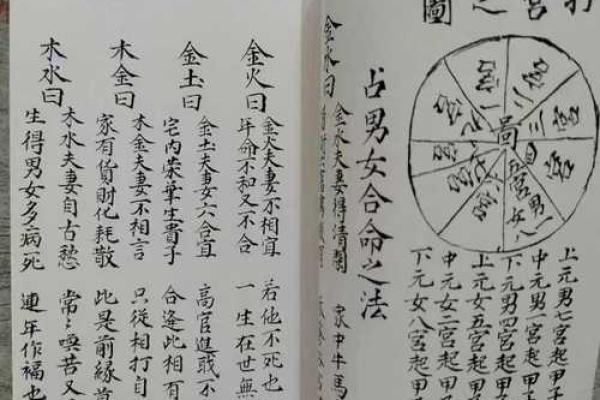 打宮之圖
一宮
二宮
三宮
四
圖
五宮男一女八
宮
宮
宮
宮
上元男七宮起甲子
中元男一宮起甲
下元男四宮起甲
上元女五宮起甲
中元女二宮起甲
下元女八宮起甲
占男女合命之法
金水曰 金水夫妻得清閒 家中牛馬
金火曰 金火夫妻不相宜 若他不死也
年命不和又不合 一生在世無
金土曰 金土夫妻六合宜 高官進職不
宅內榮華生貴子 合逢此相有
木金曰 木金夫妻不相言 只從相打自
家有貨財化耗散 此是前緣
木水曰 木水夫妻自古愁 常々喚苦又
生得男女多病死 連年作福也